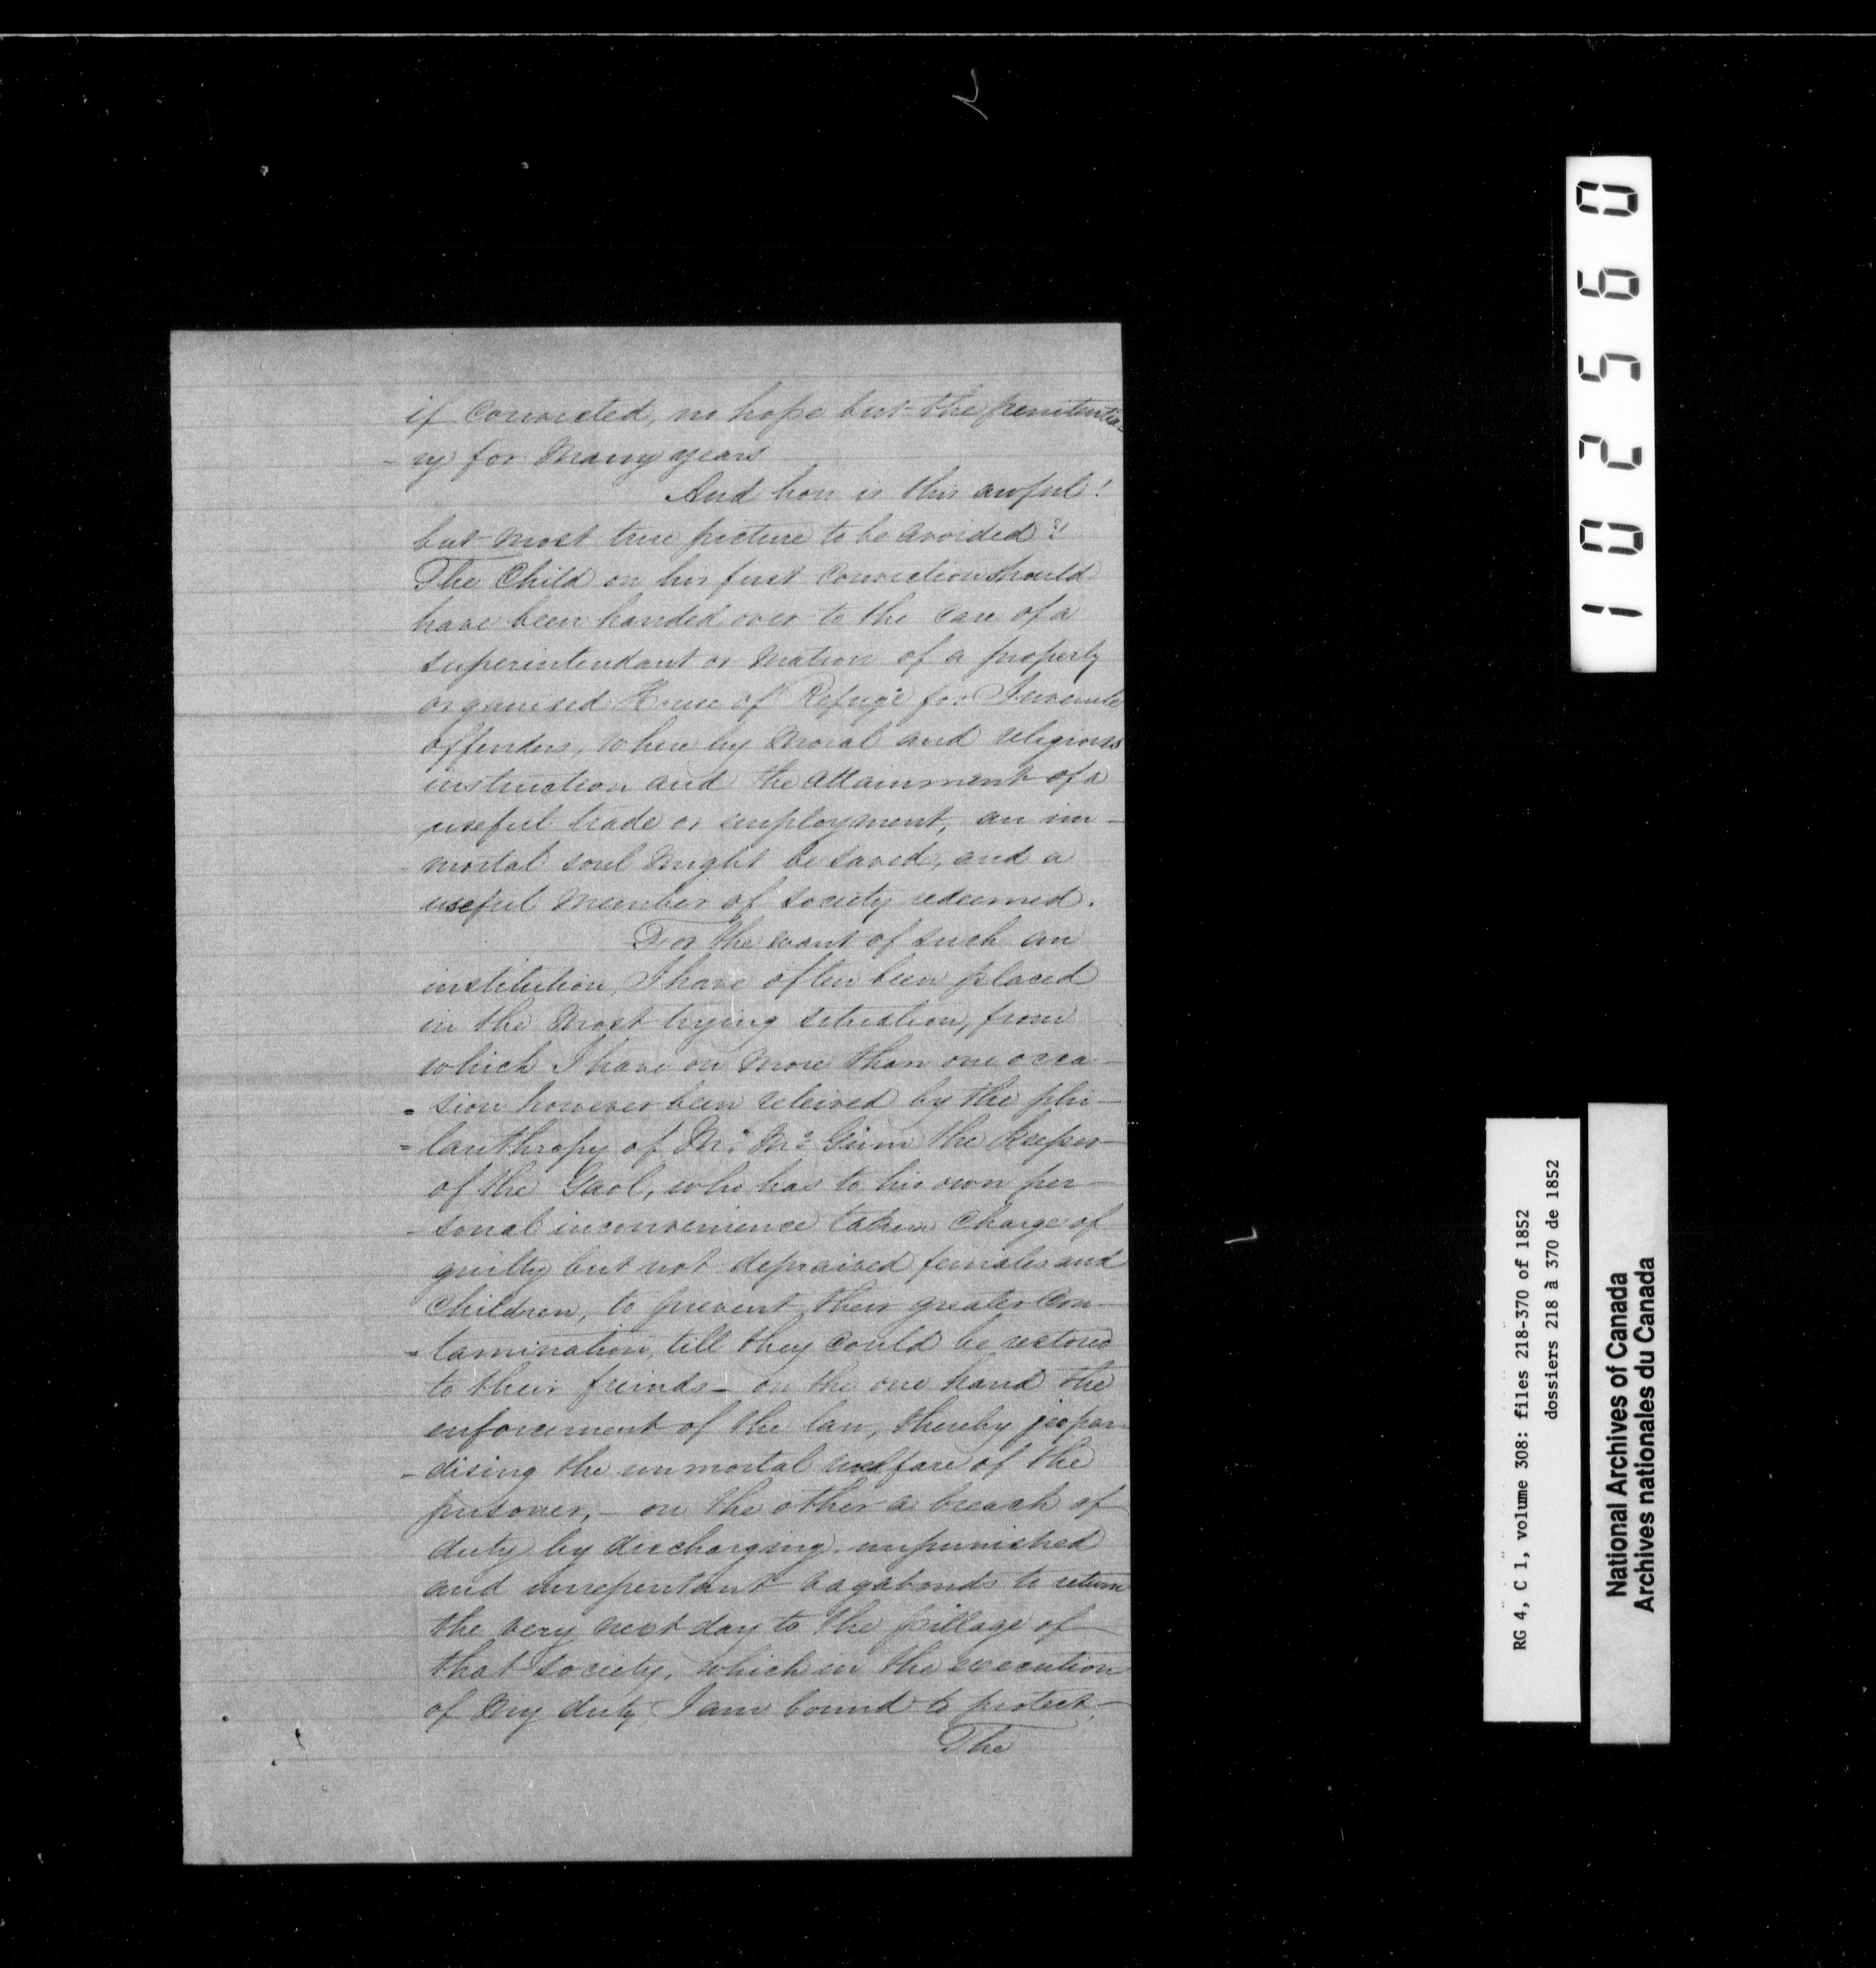 if convicted, no hope but the penitentia-
-ry for many years
And how is this awful!
but most true picture to be avoided?!
The Child on his first conviction should
have been handed over to the care of a
superintendant or Matron of a properly
organised House of Refuge for Juvenile
offenders, where by moral and religious
instruction and the attainment of a
useful trade or employment, an im-
-mortal soul might be saved, and a
useful member of society redeemed.
For the want of such an
institution, I have often been placed
in the most trying situation, from
which I have on more than one occa-
=sion however been releived by the phi-
=lanthropy of Mr. McGinn the Keeper
of the Gaol, who has to his own per-
-sonal inconvenience taken charge of
guilty but not depraived females and
children, to prevent their greater con-
=tamination, till they could be restored
to their freinds - on the one hand the
enforcement of the law, thereby jeopar
-dising the immortal welfare of the
prisoner, - on the other a breach of
duty by discharging unpunished
and unrepentant vagabonds to return
the very next day to the pillage of
that society, which in the execution
of my duty, I am bound to protect.-
The
102560
RG 4, C 1, volume 308: files 218-370 of 1852
dossiers 218 à 370 de 1852
National Archives of Canada
Archives nationales du Canada